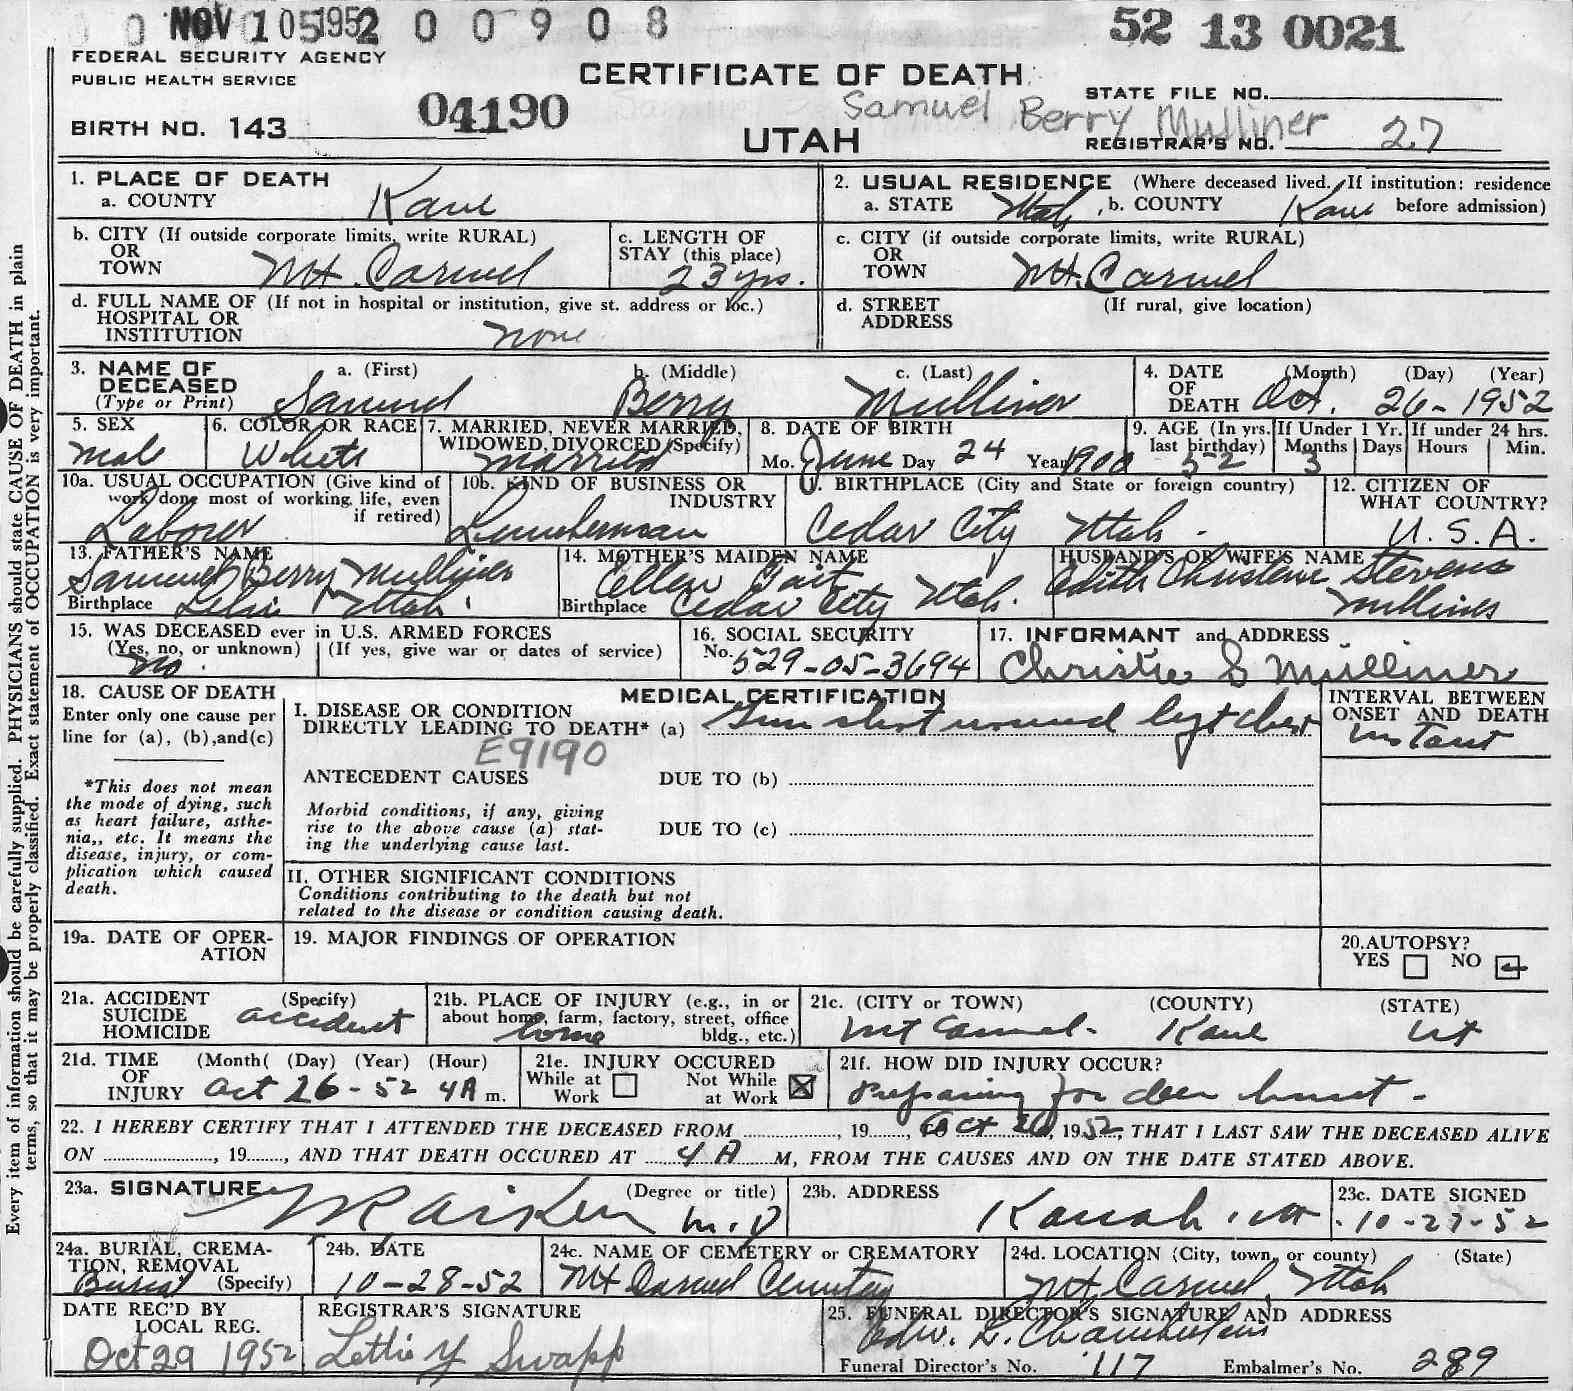 NOV 10 1952 0 0 9 0 8
52 13 0021
FEDERAL SECURITY AGENCY
PUBLIC HEALTH SERVICE
CERTIFICATE OF DEATH
STATE FILE NO.
04190
Samuel Berry Mulliner
BIRTH NO. 143
UTAH
REGISTRAR'S NO. 27
Every item of information should be carefully supplied. PHYSICIANS should state CAUSE OF DEATH in plain
terms, so that it may be properly classified. Exact statement of OCCUPATION is very important.
1. PLACE OF DEATH
a. COUNTY Kane
2. USUAL RESIDENCE (Where deceased lived. If institution: residence
a. STATE Utah, b. COUNTY Kane before admission)
b. CITY (If outside corporate limits, write RURAL)
OR
TOWN Mt. Carmel
c. LENGTH OF
STAY (this place)
23 yrs.
c. CITY (if outside corporate limits, write RURAL)
OR
TOWN Mt. Carmel
d. FULL NAME OF (If not in hospital or institution, give st. address or loc.)
HOSPITAL OR
INSTITUTION none
d. STREET (If rural, give location)
ADDRESS
3. NAME OF
DECEASED
(Type or Print)
a. (First) Samuel
b. (Middle) Berry
c. (Last) Mulliner
4. DATE (Month) (Day) (Year)
OF
DEATH Oct. 26-1952
5. SEX
Male
6. COLOR OR RACE
White
7. MARRIED, NEVER MARRIED,
WIDOWED, DIVORCED (Specify)
Married
8. DATE OF BIRTH
Mo. June Day 24 Year 1900
9. AGE (In yrs. last birthday) 52
If Under 1 Yr. Months 3 Days
If under 24 hrs. Hours Min.
10a. USUAL OCCUPATION (Give kind of
work done most of working life, even
if retired)
Laborer
10b. KIND OF BUSINESS OR
INDUSTRY
Lumberman
11. BIRTHPLACE (City and State or foreign country)
Cedar City Utah
12. CITIZEN OF
WHAT COUNTRY?
U.S.A.
13. FATHER'S NAME
Samuel Berry Mulliner
Birthplace Lehi Utah
14. MOTHER'S MAIDEN NAME
Ellen
Birthplace Cedar City Utah.
HUSBAND'S OR WIFE'S NAME
Edith Christene Stevens
Mulliner
15. WAS DECEASED ever in U.S. ARMED FORCES
(Yes, no, or unknown) (If yes, give war or dates of service)
No.
16. SOCIAL SECURITY
No. 529-05-3694
17. INFORMANT and ADDRESS
Christie S Mulliner
18. CAUSE OF DEATH
Enter only one cause per
line for (a), (b), and (c)
*This does not mean
the mode of dying, such
as heart failure, asthe-
nia,, etc. It means the
disease, injury, or com-
plication which caused
death.
MEDICAL CERTIFICATION
I. DISEASE OR CONDITION
DIRECTLY LEADING TO DEATH* (a) Gun shot wound left chest
E9190
ANTECEDENT CAUSES DUE TO (b)
Morbid conditions, if any, giving
rise to the above cause (a) stat-
ing the underlying cause last.
DUE TO (c)
II. OTHER SIGNIFICANT CONDITIONS
Conditions contributing to the death but not
related to the disease or condition causing death.
INTERVAL BETWEEN
ONSET AND DEATH
instant
19a. DATE OF OPER-
ATION
19. MAJOR FINDINGS OF OPERATION
20. AUTOPSY?
YES NO
21a. ACCIDENT (Specify)
SUICIDE
HOMICIDE
accident
21b. PLACE OF INJURY (e.g., in or
about home, farm, factory, street, office
bldg., etc.)
home
21c. (CITY or TOWN) (COUNTY) (STATE)
Mt Carmel. Kane Ut
21d. TIME (Month( (Day) (Year) (Hour)
OF
INJURY Oct 26-52 4A m.
21e. INJURY OCCURED
While at Work Not While at Work
21f. HOW DID INJURY OCCUR?
Preparing for deer hunt.
22. I HEREBY CERTIFY THAT I ATTENDED THE DECEASED FROM , 19 , Oct 26, 1952, THAT I LAST SAW THE DECEASED ALIVE
ON , 19 , AND THAT DEATH OCCURED AT 4 A M, FROM THE CAUSES AND ON THE DATE STATED ABOVE.
23a. SIGNATURE (Degree or title)
Aiken M.D
23b. ADDRESS
Kanab, Ut
23c. DATE SIGNED
10-27-52
24a. BURIAL, CREMA-
TION, REMOVAL
Burial (Specify)
24b. DATE
10-28-52
24c. NAME OF CEMETERY or CREMATORY
Mt Carmel Cemetery
24d. LOCATION (City, town, or county) (State)
Mt Carmel, Utah
DATE REC'D BY
LOCAL REG.
Oct 29 1952
REGISTRAR'S SIGNATURE
Lettie Y Swapp
25. FUNERAL DIRECTOR'S SIGNATURE AND ADDRESS
Edw. L. Chamberlain
Funeral Director's No. 117 Embalmer's No. 289